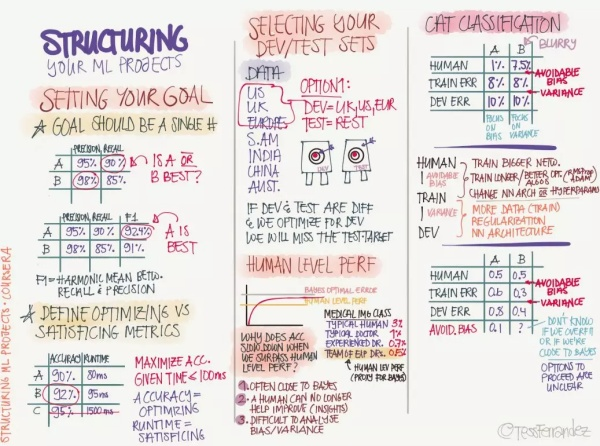 STRUCTURING
YOUR ML PROJECTS
SETTING YOUR GOAL
GOAL SHOULD BE A SINGLE #
PRECISION, RECALL
A 95% 90%
B 98% 85%
IS A OR
B BEST?
PRECISION, RECALL F1
A 95% 90% 92.4%
B 98% 85% 91%
A IS
BEST
F1 = HARMONIC MEAN BETW.
RECALL & PRECISION
DEFINE OPTIMIZING VS
SATISFICING METRICS
ACCURACY RUNTIME
A 90% 80ms
B 92% 95ms
C 95% 1500ms
MAXIMIZE ACC.
GIVEN TIME ≤ 100ms
ACCURACY =
OPTIMIZING
RUNTIME =
SATISFICING
STRUCTURING ML PROJECTS · COURSERA
SELECTING YOUR
DEV/TEST SETS
DATA
US
UK
EUROPE
S.AM
INDIA
CHINA
AUST.
OPTION1:
DEV = UK, US, EUR
TEST = REST
DEV
TEST
IF DEV & TEST ARE DIFF
& WE OPTIMIZE FOR DEV
WE WILL MISS THE TEST-TARGET
HUMAN LEVEL PERF
BAYES OPTIMAL ERROR
HUMAN LEVEL PERF
WHY DOES ACC
SLOW DOWN WHEN
WE SURPASS HUMAN
LEVEL PERF?
MEDICAL IMG CLASS
TYPICAL HUMAN 3%
TYPICAL DOCTOR 1%
EXPERIENCED DR. 0.7%
TEAM OF EXP DRS. 0.5%
HUMAN LEV PERF
(PROXY FOR BAYES)
1. OFTEN CLOSE TO BAYES
2. A HUMAN CAN NO LONGER
HELP IMPROVE (INSIGHTS)
3. DIFFICULT TO ANALYSE
BIAS/VARIANCE
CAT CLASSIFICATION
A B BLURRY
HUMAN 1% 7.5%
TRAIN ERR 8% 8%
DEV ERR 10% 10%
AVOIDABLE
BIAS
VARIANCE
FOCUS
ON
BIAS
FOCUS
ON
VARIANCE
HUMAN
AVOIDABLE
BIAS
TRAIN
VARIANCE
DEV
TRAIN BIGGER NETW.
TRAIN LONGER/BETTER OPT. ALGOS (RMSPROP ADAM)
CHANGE NN ARCH OR HYPERPARAMS
MORE DATA (TRAIN)
REGULARIZATION
NN ARCHITECTURE
A B
HUMAN 0.5 0.5
TRAIN ERR 0.6 0.3
DEV ERR 0.8 0.4
AVOID. BIAS 0.1 ?
AVOIDABLE
BIAS
VARIANCE
DON'T KNOW
IF WE OVERFIT
OR IF WE'RE
CLOSE TO BAYES
OPTIONS TO
PROCEED ARE
UNCLEAR
@TessFerrandez